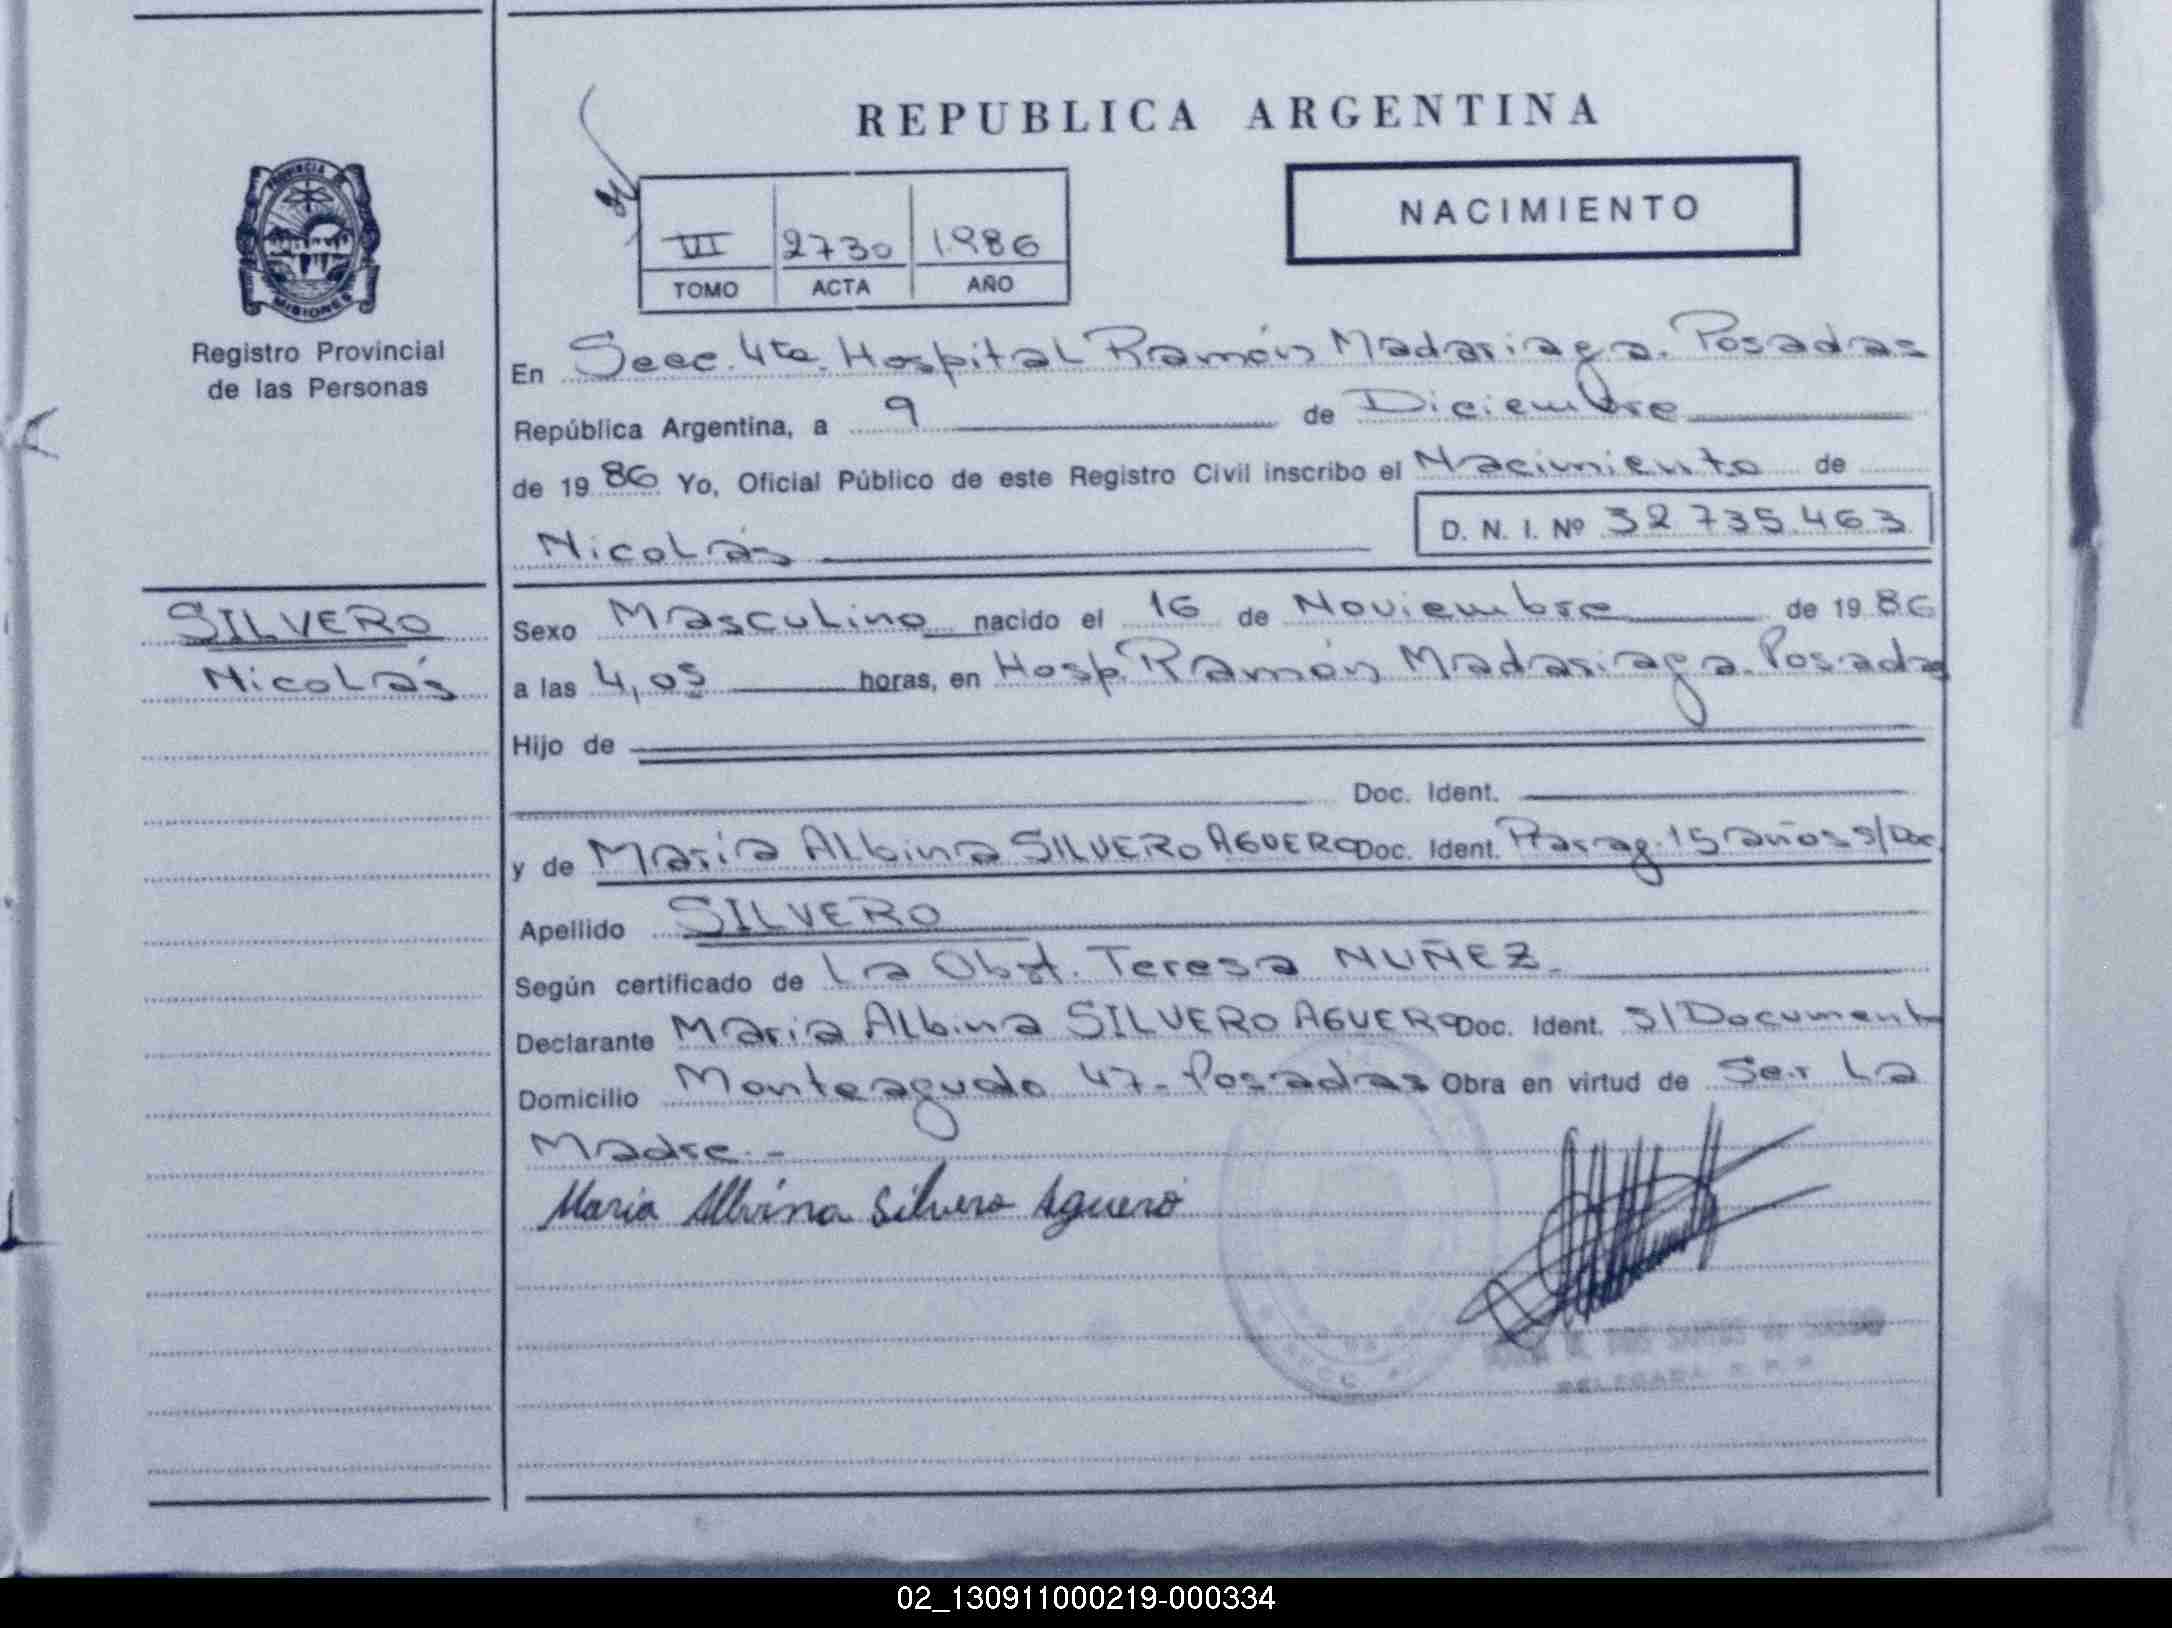 REPUBLICA ARGENTINA
NACIMIENTO
VII 2730 1986
TOMO ACTA AÑO
PROVINCIA DE
MISIONES
Registro Provincial
de las Personas
En Secc. 4ta. Hospital Ramón Madariaga. Posadas
República Argentina, a 9 de Diciembre
de 1986 Yo, Oficial Público de este Registro Civil inscribo el Nacimiento de
Nicolás D. N. I. Nº 32 735.463
SILVERO
Nicolás
Sexo Masculino nacido el 16 de Noviembre de 1986
a las 4,05 horas, en Hosp. Ramón Madariaga. Posadas
Hijo de
Doc. Ident.
y de María Albina SILVERO AGUERO Doc. Ident. Parag. 15 años s/Doc.
Apellido SILVERO
Según certificado de La Obst. Teresa NUÑEZ.
Declarante María Albina SILVERO AGUERO Doc. Ident. s/Document
Domicilio Monteagudo 47- Posadas Obra en virtud de Ser La
Madre.-
Maria Albina Silvero Aguero
DELEGADA
02_130911000219-000334